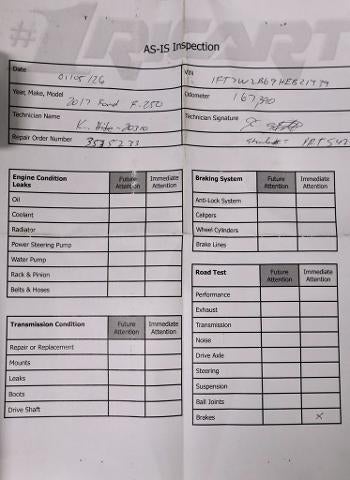 #1RICART
AS-IS Inspection
Date 01/05/26
VIN
Year, Make, Model 2017 Ford F-250
Odometer
Technician Name
Technician Signature
Repair Order Number
Engine Condition Future Attention Immediate Attention
Leaks
Oil
Coolant
Radiator
Power Steering Pump
Water Pump
Rack & Pinion
Belts & Hoses
Transmission Condition Future Attention Immediate Attention
Repair or Replacement
Mounts
Leaks
Boots
Drive Shaft
Braking System Future Attention Immediate Attention
Anti-Lock System
Calipers
Wheel Cylinders
Brake Lines
Road Test Future Attention Immediate Attention
Performance
Exhaust
Transmission
Noise
Drive Axle
Steering
Suspension
Ball Joints
Brakes X